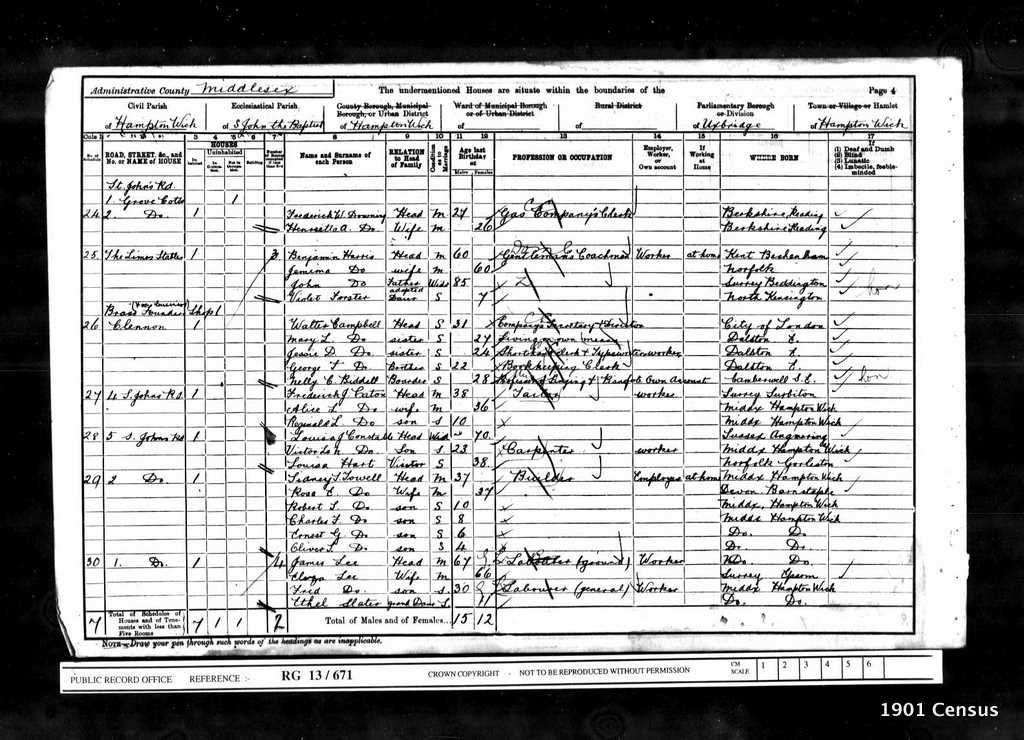 Administrative County Middlesex The undermentioned Houses are situate within the boundaries of the Page 4
Civil Parish Ecclesiastical Parish County Borough, Municipal Borough, or Urban District Ward of Municipal Borough or of Urban District Rural District Parliamentary Borough or Division Town or Village or Hamlet
of Hampton Wick of S John the Baptist of Hampton Wick of of of Uxbridge of Hampton Wick
Cols. 1 2 3 4 5 6 7 8 9 10 11 12 13 14 15 16 17
No. of Schedule ROAD, STREET, &c., and No. or NAME of HOUSE HOUSES Inhabited Uninhabited In Occupation Not in Occupation Building Name and Surname of each Person RELATION to Head of Family Condition as to Marriage Age last Birthday of Males Females PROFESSION OR OCCUPATION Employer, Worker, or Own account If Working at Home WHERE BORN If (1) Deaf and Dumb (2) Blind (3) Lunatic (4) Imbecile, feeble-minded
St. John's Rd
1. Grove Cotts 1
24 2. Do. 1 Frederick W. Downing Head M 27 Gas Company's Clerk Berkshire, Reading
Henrietta A. Do. Wife M 26 Berkshire Reading
25 The Limes Stables 1 3 Benjamin Harris Head M 60 Gentleman's Coachman Worker at home Kent Beckenham
Jemima Do wife M 60 Norfolk
John Do Father Widr 85 Surrey Beddington
Violet Forster adopted Daur S 7 North Kensington
Brass Founders Shop 1
26 Clennon 1 Walter Campbell Head S 31 Company's Secretary & Director City of London
Mary L. Do sister S 27 Living on own means Dalston
Jessie D. Do. sister S 24 Shorthand clerk & Typewriter worker Dalston
George T Do Brother S 22 Bookkeeping Clerk Dalston
Nelly C. Biddell Boarder S 28 Professor of Singing & Pianoforte Own Account Camberwell S.E.
27 4 S. Johns Rd. 1 Frederick J Eaton Head M 38 Tailor worker Surrey Surbiton
Alice L. Do wife M 36 Middx Hampton Wick
Reginald L. Do son S 10 Middx Hampton Wick
28 5 S. Johns Rd 1 Louisa J Constable Head Wid 70 Sussex Angmering
Do. Son S 23 Carpenter worker Middx Hampton Wick
Louisa Hart Visitor S 38 Norfolk Gorleston
29 2 Do. 1 Sidney T. Powell Head M 37 Builder Employer at home Middx Hampton Wick
Rose E. Do Wife M 37 Devon Barnstaple
Robert T Do son S 10 Middx, Hampton Wick
Charles F. Do son S 8 Middx Hampton Wick
Ernest G. Do son S 6 Do. Do.
Oliver S. Do son S 4 Do. Do.
30 1. Do. 1 4 James Lee Head M 67 Labourer (ground) Worker Do. Do.
Eliza Lee Wife M 66 Surrey Epsom
Fred Do son S 30 Labourer (general) Worker Middx Hampton Wick
Ethel Slater grand Daur S 11 Do. Do.
7 Total of Schedules of Houses and of Tenements with less than Five Rooms 7 1 1 2 Total of Males and of Females... 15 12
NOTE—Draw your pen through such words of the headings as are inapplicable.
PUBLIC RECORD OFFICE REFERENCE :- RG 13/671 CROWN COPYRIGHT - NOT TO BE REPRODUCED WITHOUT PERMISSION CM SCALE 1 2 3 4 5 6
1901 Census